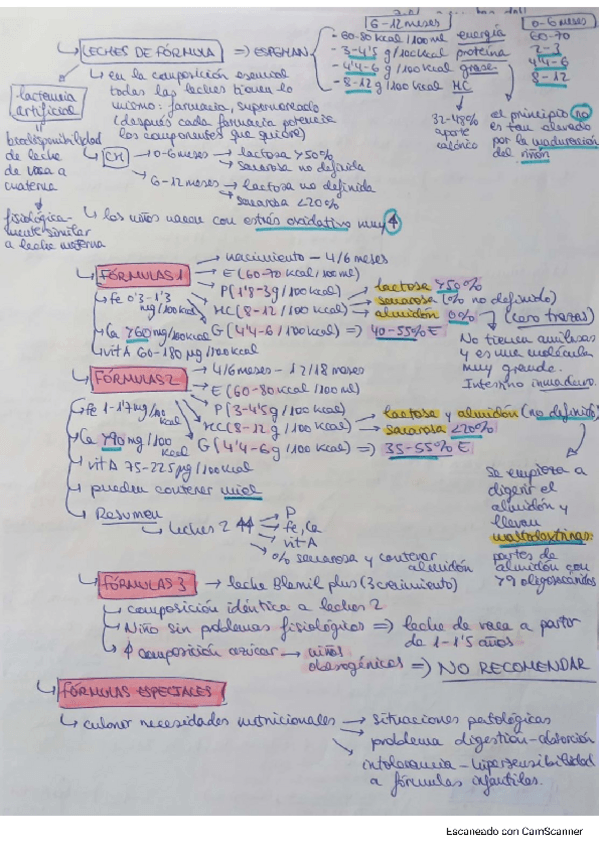 6-12 meses
0-6 meses
LECHES DE FÓRMULA => ESPGHAN
- 60-80 kcal/100ml energía
60-70
- 3-4'5 g/100kcal proteína
2-3
- 4'4-6 g/100kcal grasa
4'4-6
- 8-12 g/100 kcal HC
8-12
en la composición esencial
todas las leches tienen lo
mismo: farmacia, supermercado
(después cada farmacia potencia
los componentes que quiere)
32-48%
aporte
calórico
el principio no
es tan elevado
por la maduración
del riñón
lactancia
artificial
biodisponibilidad
de leche
de vaca a
cuaterna
CH
0-6 meses → lactosa >50%
sacarosa no definida
6-12 meses → lactosa no definida
sacarosa <20%
fisiológica-
mente similar
a leche materna
los niños nacen con estrés oxidativo muy ↑
FÓRMULAS 1
nacimiento - 4/6 meses
E (60-70 kcal/100ml)
P (1'8-3g/100kcal)
HC (8-12/100 kcal)
lactosa >50%
sacarosa (% no definido)
almidón 0% (cero trazas)
G (4'4-6/100kcal) => 40-55% E
fe 0'3-1'3
mg/100kcal
Ca >60mg/100kcal
vit A 60-180 µg/100kcal
No tienen amilasas
y es una molécula
muy grande.
Intestino inmaduro.
FÓRMULAS 2
4/6 meses - 12/18 meses
E (60-80 kcal/100ml)
P (3-4'5g/100kcal)
HC (8-12 g/100kcal)
lactosa y almidón (no definido)
sacarosa <20%
G (4'4-6g/100kcal) => 35-55% E
fe 1-1'7mg/100
kcal
Ca >90mg/100
kcal
vit A 75-225µg/100kcal
pueden contener miel
Resumen
Leches 2 ↑↑
P
fe, Ca
vit-A
% sacarosa y contener
almidón
Se empieza a
digerir el
almidón y
llevan
maltodextrinas:
partes de
almidón con
>9 oligosacáridos
FÓRMULAS 3 → leche Blemil plus (3 crecimiento)
composición idéntica a leches 2
Niño sin problemas fisiológicos => leche de vaca a partir
de 1-1'5 años
↑ composición azúcar → niños
obesogénicos => NO RECOMENDAR
FÓRMULAS ESPECIALES
cubrir necesidades nutricionales → situaciones patológicas
problema digestión-absorción
intolerancia-hipersensibilidad
a fórmulas infantiles.
Escaneado con CamScanner